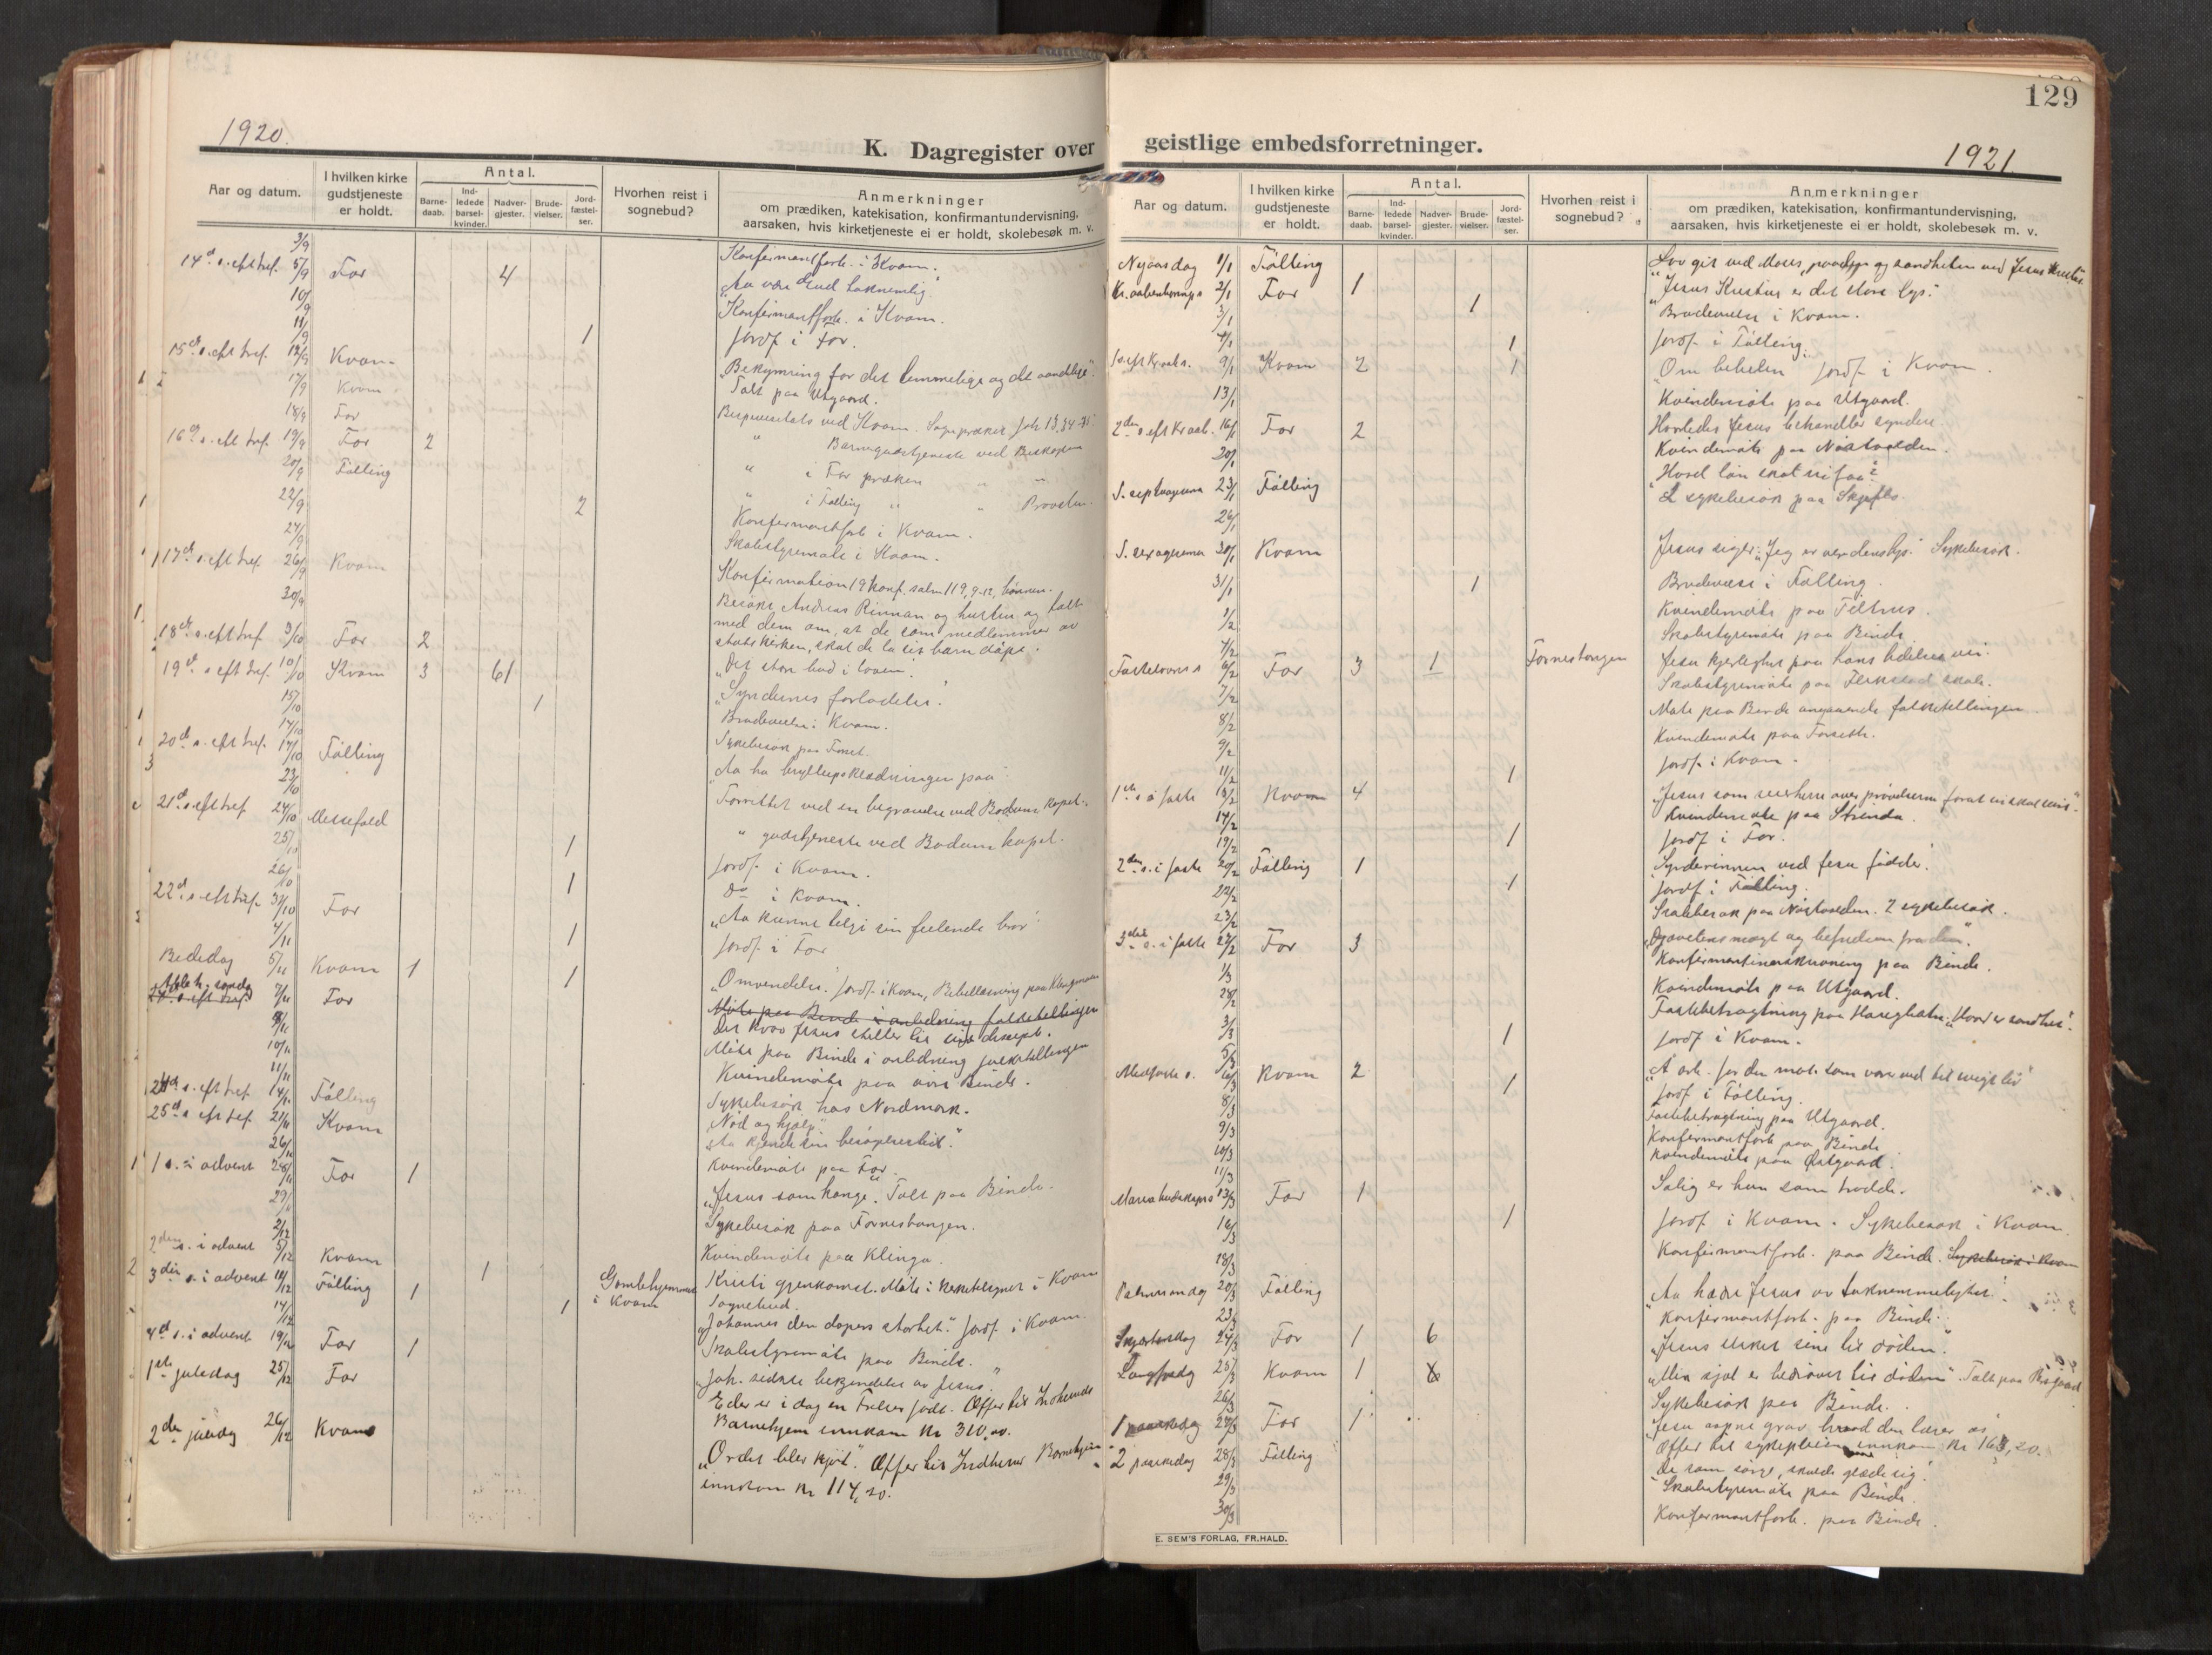 1920.
K. Dagregister over
Aar og datum.
I hvilken kirke gudstjeneste er holdt.
Antal.
Barne-daab.
Ind-ledede barsel-kvinder.
Nadver-gjester.
Brude-vielser.
Jord-fæstel-ser.
Hvorhen reist i sognebud?
Anmerkninger
om prædiken, katekisation, konfirmantundervisning,
aarsaken, hvis kirketjeneste ei er holdt, skolebesøk m. v.
3/9 Konfirmantforb. i Kvam.
14d s. eft. tref. 5/9 For 4 „Aa være Gud taknemlig.
10/9 Konfirmantforb. i Kvam.
11/9 1 Jordf. i For.
15d s. eft tref. 12/9 Kvam „Bekymring for det timmelige og det aandelige".
17/9 Kvam Talt paa Utgaard.
18/9 For
16d s. eft tref. 19/9 For 2
20/9 Følling
22/9 2 Konfirmantforb i Kvam.
24/9 Skolestyremøte i Kvam.
17d s. eft tref 26/9 Kvam Konfirmation 19 konf. salm 119, 9-12,
30/9 Besøkt Andreas Rinnan og hustru og talt
med dem om, at de som medlemmer av
statskirken, skal de la sit barn døpe.
18d s. eft tref 3/10 For 2 „Det store bud i loven".
19d s eft tref. 10/10 Kvam 3 61 „Syndernes forladelse".
15/10 1 Brudevielse i Kvam.
17/10 Sykebesøk paa Forset.
20d s. eft tref. 17/10 Følling „Aa ha bryllupsklædningen paa".
23/10 Forrettet ved en begravelse ved Bodum kapel.
21d s. eft tref 24/10 Messefald " gudstjeneste ved Bodum kapel.
25/10 1 Jordf. i Kvam.
26/10 1 Do i Kvam.
22d s. eft tref. 31/10 For „Aa kunne tilgi sin feilende bror".
4/11 1 Jordf. i For
Bededag 5/11 Kvam 1 1 „Omvendelse". Jordf. i Kvam,
7/11 For Møte paa Binde i anledning folketellingen
Det krav Jesus stiller til sine disciple.
10/11 Møte paa Binde i anledning folketellingen
11/11 Kvindemøte paa øvre Binde.
s. eft tref 14/11 Følling Sykebesøk hos Nordmark.
„Nød og hjælp".
25d s eft tref. 21/11 Kvam „Aa kjende sin besøkelsestid."
26/11 Kvindemøte paa For.
1 s. i advent 28/11 For 1 „Jesus som konge". Talt paa Binde.
29/11 Sykebesøk paa Fornestangen.
2/12 Kvindemøte paa Klinga.
2den s. i advent 5/12 Kvam 1 Kristi gjenkomst. Møte i i Kvam
3die s. i advent 12/12 Følling 1 Gamlehjemmet i Kvam Sognebud.
14/12 1 „Johannes den døpers storhet." Jordf. i Kvam.
Skolestyremøte paa Binde.
4d s. i advent 19/12 For 1 „Joh. sidste bekjendelse av Jesus."
1ste juledag 25/12 For Eder er i dag en Frelser født. Offer til Inherreds
Barnehjem innkom kr 310,00.
2den juledag 26/12 Kvam „Ordet blev kjøt". Offer til Indherred Barnehjem
innkom kr 114,20.
129
geistlige embedsforretninger.
1921.
Aar og datum.
I hvilken kirke gudstjeneste er holdt.
Antal.
Barne-daab.
Ind-ledede barsel-kvinder.
Nadver-gjester.
Brude-vielser.
Jord-fæstel-ser.
Hvorhen reist i sognebud?
Anmerkninger
om prædiken, katekisation, konfirmantundervisning,
aarsaken, hvis kirketjeneste ei er holdt, skolebesøk m. v.
Nyaarsdag 1/1 Følling Lov git ved Moses, og sandheten ved Jesus Kristus
Kr. aabenbarings 2/1 For 1 „Jesus Kristus er det store lys."
3/1 1 Brudevielse i Kvam.
4/1 1 Jordf. i Følling.
1 s. eft Kr. aab s. 9/1 Kvam 2 1 „Om bibelen" Jordf. i Kvam.
13/1 Kvindemøte paa Utgaard.
2den s. eft Kr aab. 16/1 For 2 Hvorledes Jesus behandler syndere
20/1 Kvindemøte paa Nøstvolden.
S. septuagesima 23/1 Følling „Hvad løn skal vi faa?"
26/1 2 sykebesøk paa
S. sexagesima 30/1 Kvam Jesus siger: „Jeg er verdens lys." Sykebesøk.
31/1 1 Brudevielse i Følling.
1/2 Kvindemøte paa
Skolestyremøte paa Binde
Fastelavns s 6/2 For 3 1 Fornestangen Jesu kjærlighet paa hans lidelses vei.
7/2 Skolestyremøte paa skole.
8/2 Møte paa Binde angaaende folketellingen
9/2 Kvindemøte paa Forseth.
11/2 1 Jordf. i Kvam.
1ste s. i faste 13/2 Kvam 4 „Jesus som seierherre over prøvelserne
14/2 Kvindemøte paa Strinda.
19/2 1 Jordf i For.
2den s. i faste 20/2 Følling 1 Synderinnen ved Jesu fødder.
22/2 1 Jordf i Følling.
23/2 Skolebesøk paa Nøstvolden. 2 sykebesøk.
3die s. i faste 27/2 For 3 „Djævelens magt og befrielsen fra den".
1/3 Konfirmantinnskrivning paa Binde.
28/2 Kvindemøte paa Utgaard.
3/3 Fastebetragtning paa „Hvad er sandhet".
5/3 1 Jordf i Kvam.
Midfaste s. 6/3 Kvam 2 „Å arb. for den mat som varer ved til evigt liv"
8/3 1 Jordf i Følling.
9/3 Fastebetragtning paa Utgaard.
10/3 Konfirmantforb paa Binde
11/3 Kvindemøte paa Østgaard.
Maria budskaps s 13/3 For 1 Salig er hun som trodde.
16/3 1 Jordf i Kvam. Sykebesøk i Kvam
18/3 Konfirmantforb. paa Binde. Sykebesøk i Kvam
Palmesøndag 20/3 Følling „Aa hædre Jesus av taknemmelighet".
23/3 Konfirmantforb. paa Binde.
Skjærtorsdag 24/3 For 1 6 „Jesus elsket sine til døden".
Langfredag 25/3 Kvam 1 „Min sjæl er bedrøvet til døden" Talt paa
26/3 Sykebesøk paa Binde.
1 paaskedag 27/3 For 1 „Jesu aapne grav, hvad den lærer os"
Offer til sykepleien innkom kr 163,20.
2 paaskedag 28/3 Følling De som sørge, skulde glæde sig.
29/3 Skolestyremøte paa Binde.
30/3 Konfirmantforb. paa Binde.
E. SEM'S FORLAG, FR.HALD.